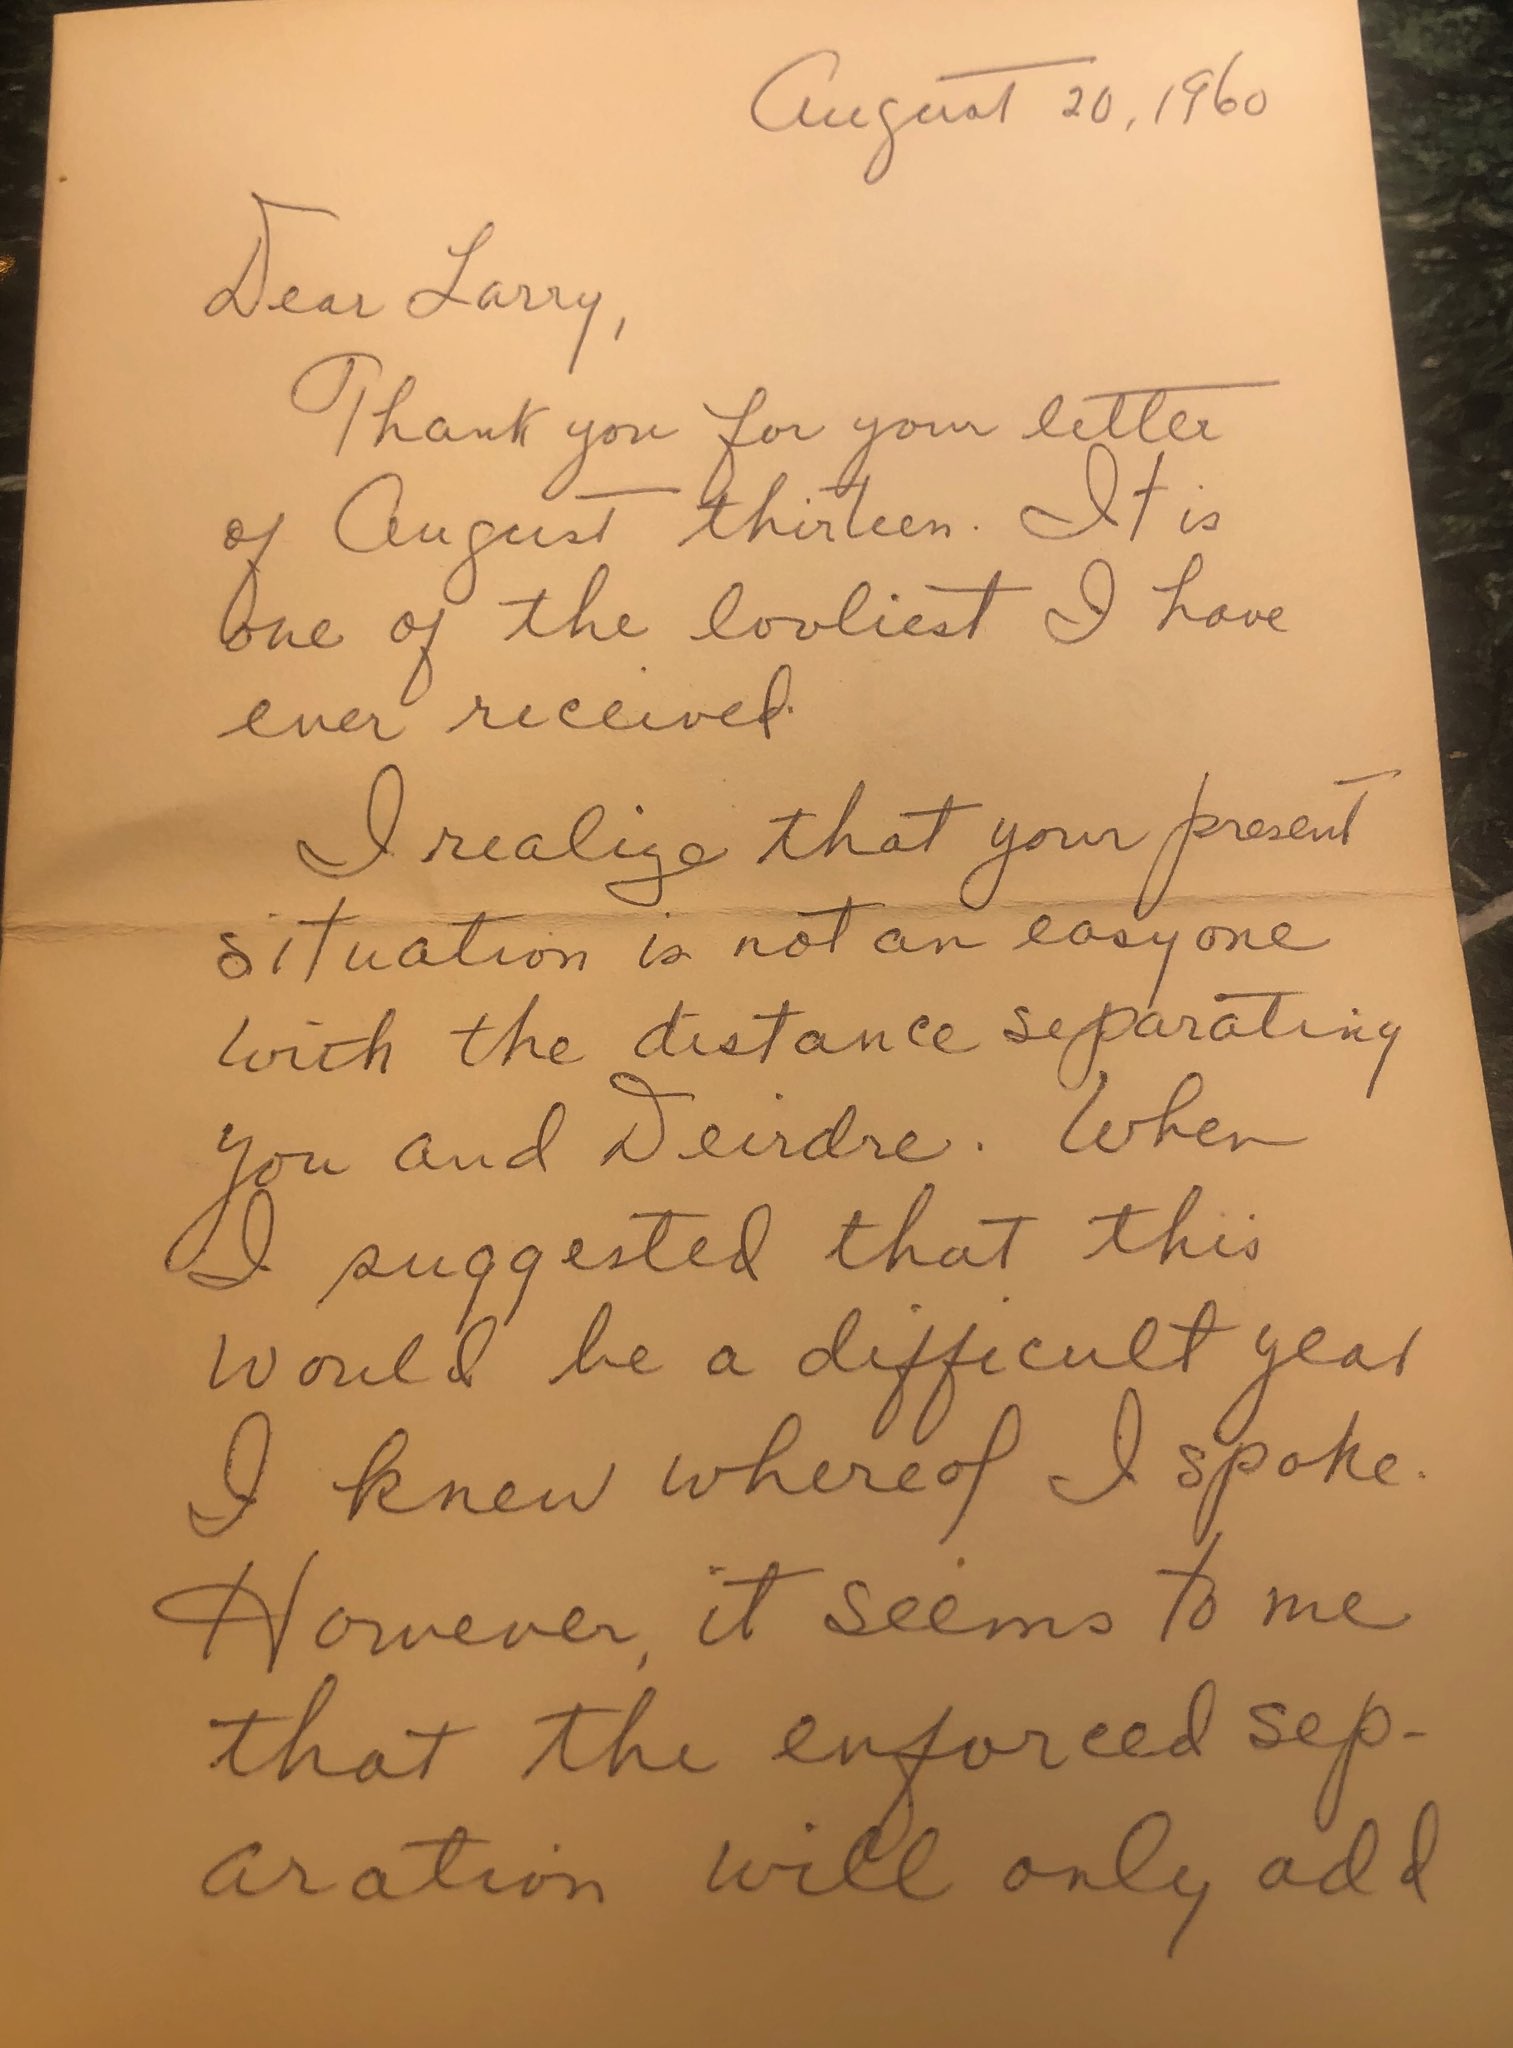 August 20, 1960
Dear Larry,
Thank you for your letter
of August thirteen. It is
one of the lovliest I have
ever received.
I realize that your present
situation is not an easy one
with the distance separating
you and Deirdre. When
I suggested that this
would be a difficult year
I knew whereof I spoke.
However, it seems to me
that the enforced sep-
aration will only add